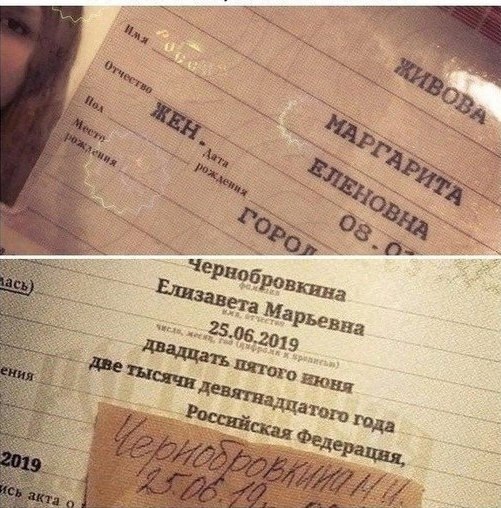 ЖИВОВА
Имя
МАРГАРИТА
Отчество
ЕЛЕНОВНА
Пол
ЖЕН.
Дата
рождения
08.0
Место
рождения
ГОРОД
Чернобровкина
фамилия
лась)
Елизавета Марьевна
имя, отчество
25.06.2019
число, месяц, год (цифрами и прописью)
двадцать пятого июня
две тысячи девятнадцатого года
ения
Российская Федерация,
2019
ись акта о
Чернобровкина М.И.
25.06.19